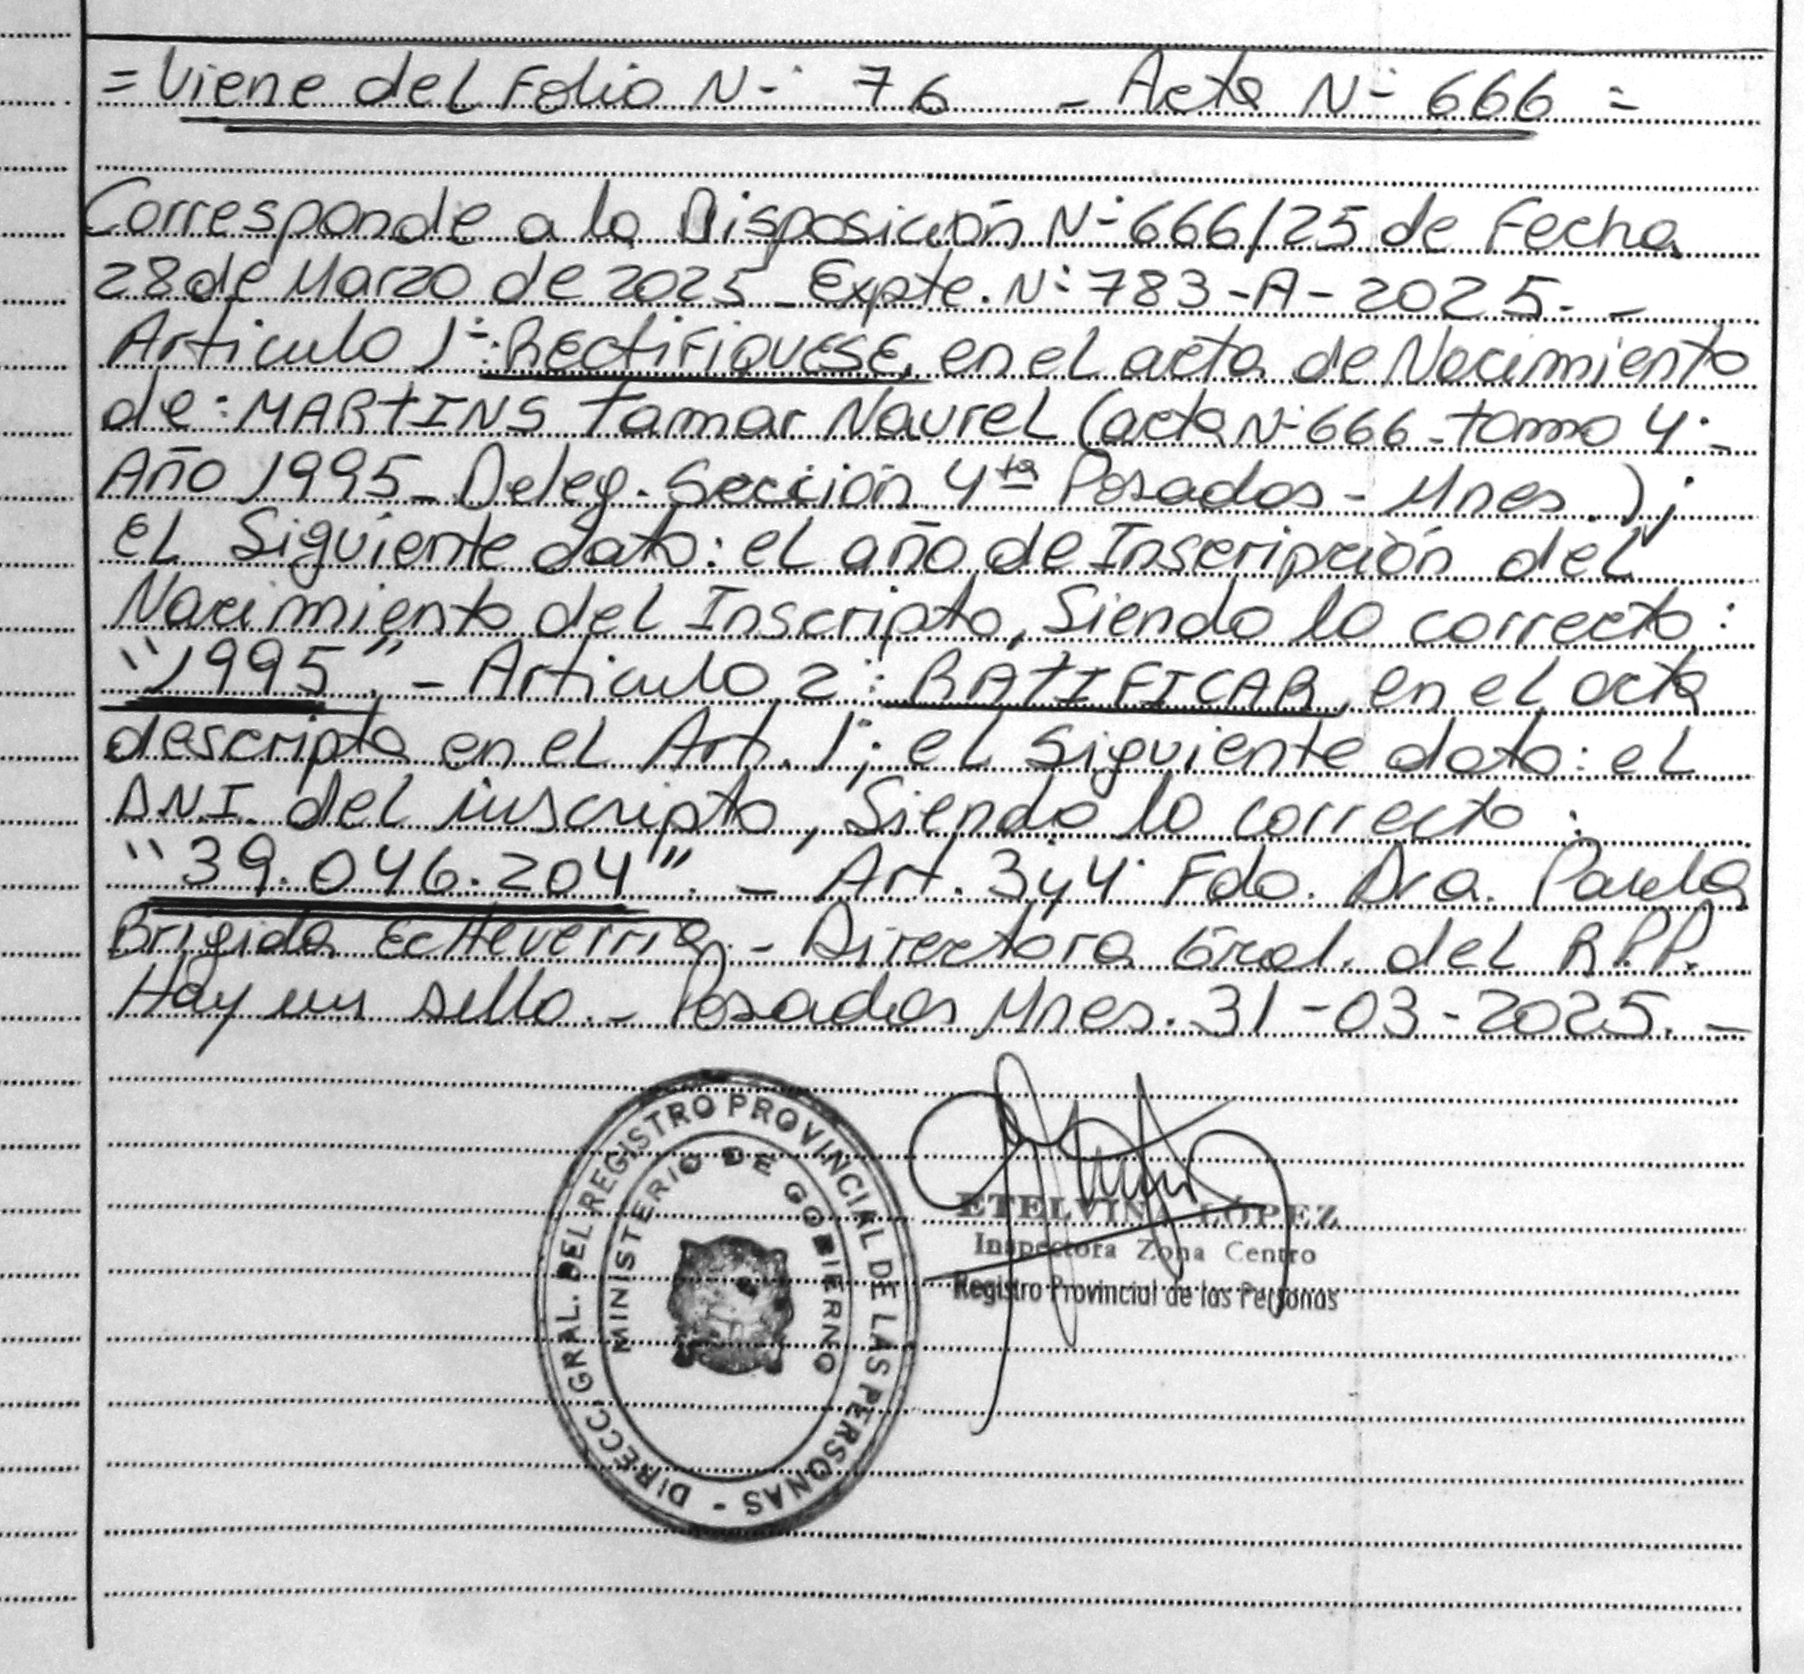 = Viene del Folio N-° 76 - Acta N-° 666 =
Corresponde a la Disposición N-° 666/25 de Fecha
28 de Marzo de 2025 - Expte. N-° 783-A-2025. -
Articulo 1°: RECtiFIQUESE, en el acta de Nacimiento
de: MARTINS Tamar Naurel (acta N-° 666 - tomo 4° -
Año 1995 - Deleg. Sección 4ta Posadas - Mnes.);
el Siguiente dato: el año de Inscripción del
Nacimiento del Inscripto, Siendo lo correcto:
"1995". - Articulo 2: RATIFICAR, en el acta
descripta en el Art. 1°; el Siguiente dato: el
D.N.I. del inscripto, Siendo lo correcto:
"39.046.204". - Art. 3 y 4° Fdo. Dra. Paula
Brigida Echeverria. - Directora Gral. del R.P.P.
Hay un sello. - Posadas Mnes. 31-03-2025. -
DIRECC. GRAL. DEL REGISTRO PROVINCIAL DE LAS PERSONAS -
MINISTERIO DE GOBIERNO
ETELVINA LÓPEZ
Inspectora Zona Centro
Registro Provincial de las Personas